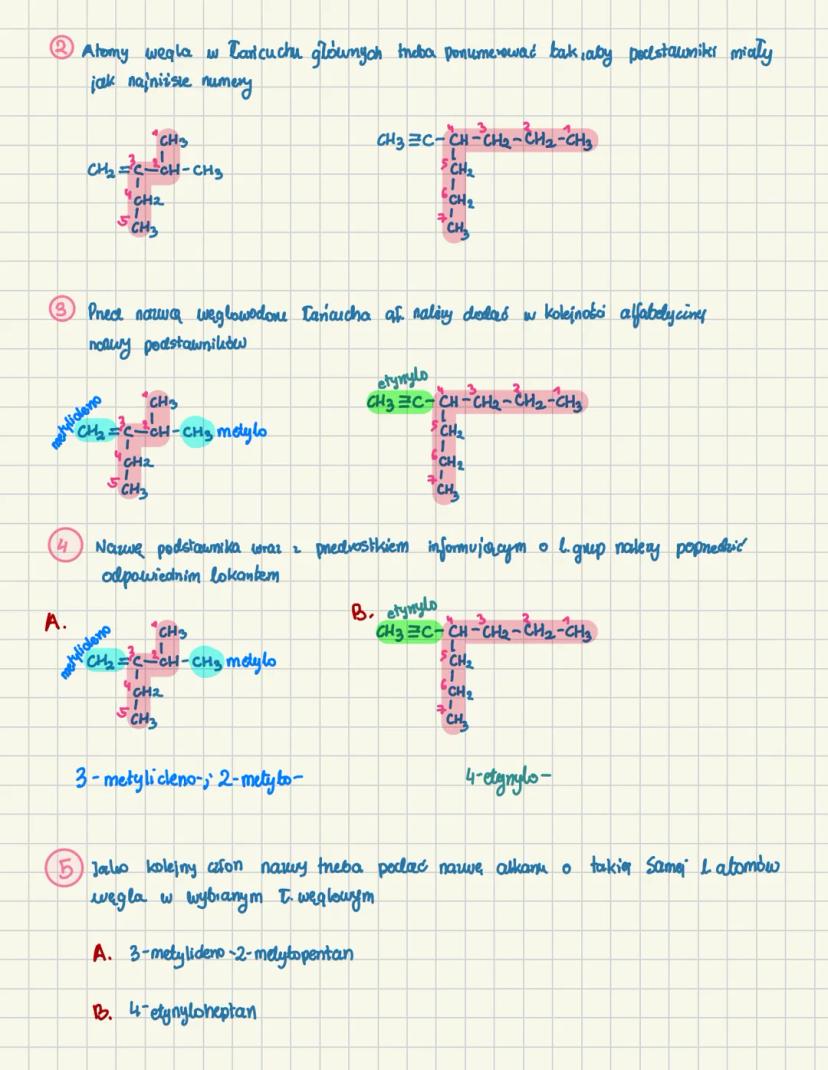 ② Atomy węgla w łańcuchu głównych trzeba ponumerować tak, aby podstawniki miały
jak najniższe numery
1 CH3
CH2 = 3 C - 2 CH - CH3
4 CH2
5 CH3
CH3 ≡ C - 4 CH - 3 CH2 - 2 CH2 - 1 CH3
5 CH2
6 CH2
7 CH3
③ Przed nazwą węglowodoru łańcucha gł. należy dodać w kolejności alfabetycznej
nazwy podstawników
metylideno
1 CH3
CH2 = 3 C - 2 CH - CH3 metylo
4 CH2
5 CH3
etynylo
CH3 ≡ C - 4 CH - 3 CH2 - 2 CH2 - 1 CH3
5 CH2
6 CH2
7 CH3
④ Nazwę podstawnika wraz z przedrostkiem informującym o l. grup należy poprzedzić
odpowiednim lokantem
A.
metylideno
1 CH3
CH2 = 3 C - 2 CH - CH3 metylo
4 CH2
5 CH3
B.
etynylo
CH3 ≡ C - 4 CH - 3 CH2 - 2 CH2 - 1 CH3
5 CH2
6 CH2
7 CH3
3-metylideno-; 2-metylo-
4-etynylo-
⑤ Jako kolejny człon nazwy trzeba podać nazwę alkanu o takiej samej l. atomów
węgla w wybranym ł. węglowym
A. 3-metylideno-2-metylopentan
B. 4-etynyloheptan